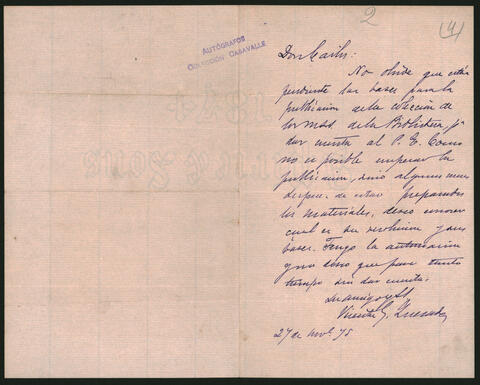 2
(4)
AUTÓGRAFOS
COLECCIÓN CASAVALLE
Don Carlos:
No olvide que están
pendiente las bases para la
publicacion de la coleccion de
los mss. de la Biblioteca, pa
dar cuenta al P. E. Como
no es posible empezar la
publicacion, sino algunos meses
despues de estar preparados
los materiales, deseo conocer
cual es su resolucion y sus
bases. Tengo la autorizacion
y no deseo que pase tanto
tiempo sin dar cuenta.
Su amigo
Vicente G. Quesada
27 de nov. 75